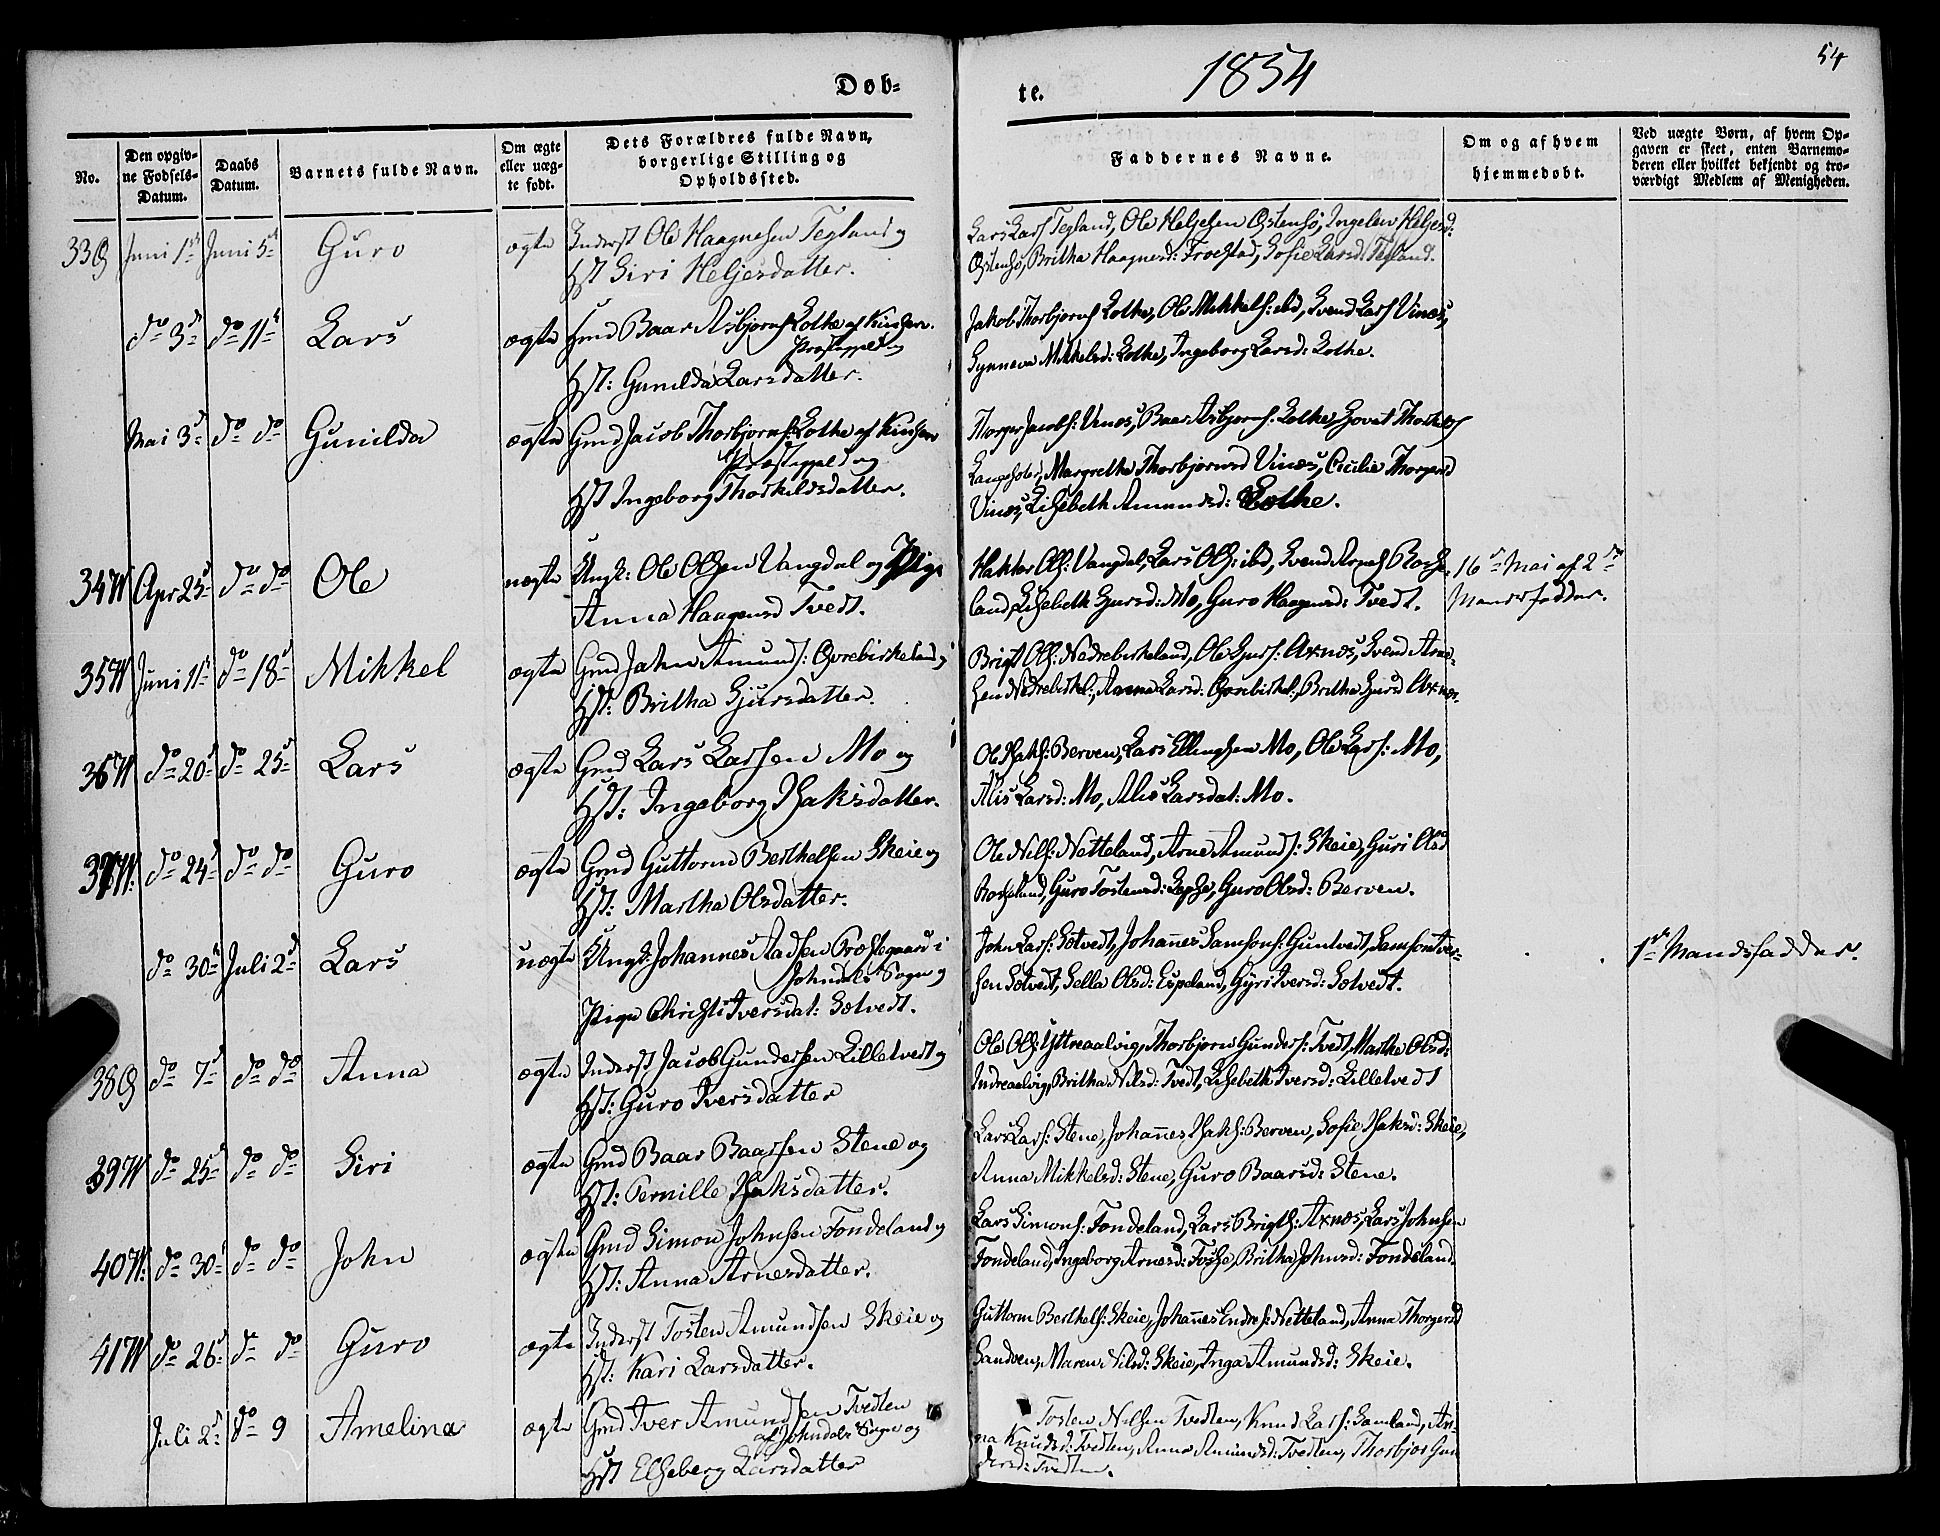 Døb-
te.
1854
54
No.
Den opgiv-
ne Fødsels-
Datum.
Daabs
Datum.
Barnets fulde Navn.
Om ægte
eller uæg-
te født.
Dets Forældres fulde Navn,
borgerlige Stilling og
Opholdssted.
Faddernes Navne.
Om og af hvem
hjemmedøbt.
Ved uægte Børn, af hvem Op-
gaven er skeet, enten Barnemo-
deren eller hvilket bekjendt og tro-
værdigt Medlem af Menigheden.
33 Juni 1 Juni 5 Guro ægte Inderst Ole Haagnesen Tegland og
Hst Siri Heljesdatter.
Lars Lars Tegland, Ole Heljesen Østensø, Ingelev Heljesd:
Østensø, Britha Haagnesd: Froestad, Sofie Larsd: Tegland.
do 3 do 11 Lars ægte Gmd Baar Asbjørns Lothe af Kinserv.
Præstegjeld og
Hst: Gunilda Larsdatter.
Jakob Thorbjørns Lothe, Ole Mikkels: ibd, Svend Lars Vines,
Synneva Mikkelsd: Lothe, Ingeborg Larsd: Lothe.
Mai 3 do do Gunilda ægte Gmd Jacob Thorbjørns: Lothe af Kinserv
Præstegjeld og
Hst Ingeborg Thorkildsdatter.
Thorger Jacobs: Vines, Baar Asbjørns: Lothe,
Margretha Thorbjørnsd Vines, Cicilie Thorgersd
Vines, Lisebeth Amundsd: Lothe.
34 Apr 25 do do Ole uægte Ungk: Ole Olsen Vangdal og Pige
Anna Haagensd Tvedt.
Haktor Ols: Vangdal, Lars Ols: ibd, Svend Arnes Rose-
land, Lisebeth Gjursd: Mo, Guro Haagensd: Tvedt.
16 Mai af 2
Mandsfadder.
35 Juni 11 do 18 Mikkel ægte Gmd Jahn Amunds: Øvrebirkeland og
Hst: Britha Gjursdatter.
Brigt Ols: Nedrebirkeland, Ole Gjurs: Axnæs, Svend Arne-
sen Nedrebirkel:, Anna Larsd: Øvrebirkel:, Britha Gjursd Axnæs.
36 do 20 do 25 Lars ægte Gmd Lars Larssen Mo og
Hst: Ingeborg Isaksdatter.
Ole Isaks: Berven, Lars Ellingsen Mo, Ole Lars: Mo,
Alis Larsd: Mo, Alis Larsdat: Mo.
37 do 24 do do Guro ægte Gmd Guttorm Berthelsen Skeie og
Hst: Martha Olsdatter.
Ole Nils: Netteland, Arne Amunds: Skeie, Guri Olsd
Roseland, Guro Tostensd: Lepsø, Guro Olsd: Berven.
do 30 Juli 2 Lars uægte Ungk: Johannes Aadsen Præstegaard i
Johndals Sogn og
Pige Christi Iversdat: Sotvedt.
John Lars: Sotvedt, Johannes Samsons: Guntvedt, Samson Iver-
sen Sotvedt, Sella Olsd: Espeland, Gyri Iversd: Sotvedt.
1 Mandsfadder.
38 do 7 do do Anna ægte Inderst Jacob Gundersen Lilletvedt og
Hst: Guro Iversdatter
Ole Ols: Yttreaalvig, Thorbjørn Gunders: Tvedt, Martha Olsd:
Indreaalvig, Britha Nilsd: Tvedt, Lisebeth Iversd: Lilletvedt
39 do 25 do do Siri ægte Gmd Baar Baarssen Stene og
Hst: Pernille Isaksdatter.
Lars Lars: Stene, Johannes Isaks: Berven, Sofie Isaksd: Skeie,
Anna Mikkelsd: Stene, Guro Baarsd: Stene.
40 do 30 do do John ægte Gmd Simon Johnsen Fondeland og
Hst: Anna Arnesdatter.
Lars Simons: Fondeland, Lars Brigths: Axnæs, Lars Johnsen
Fondeland, Ingeborg Arnesd: Fosse, Britha Johnsd: Fondeland.
41 do 26 do do Guro ægte Inderst Tosten Amundsen Skeie og
Hst: Kari Larsdatter.
Guttorm Berthels: Skeie, Johannes Endres: Netteland, Anna Thorgersd
Sandven, Maren Nilsd: Skeie, Inga Amundsd: Skeie.
Juli 2 do 9 Amelina ægte Gmd Iver Amundsen Tvedten
af Johndals Sogn og
Hst Elseberg Larsdatter
Tosten Nilsen Tvedten, Knud Lars: Samland, An-
na Knudsd: Tvedten, Anna Amundsd: Tvedten, Thorbjør Gun
dersd: Tvedten.